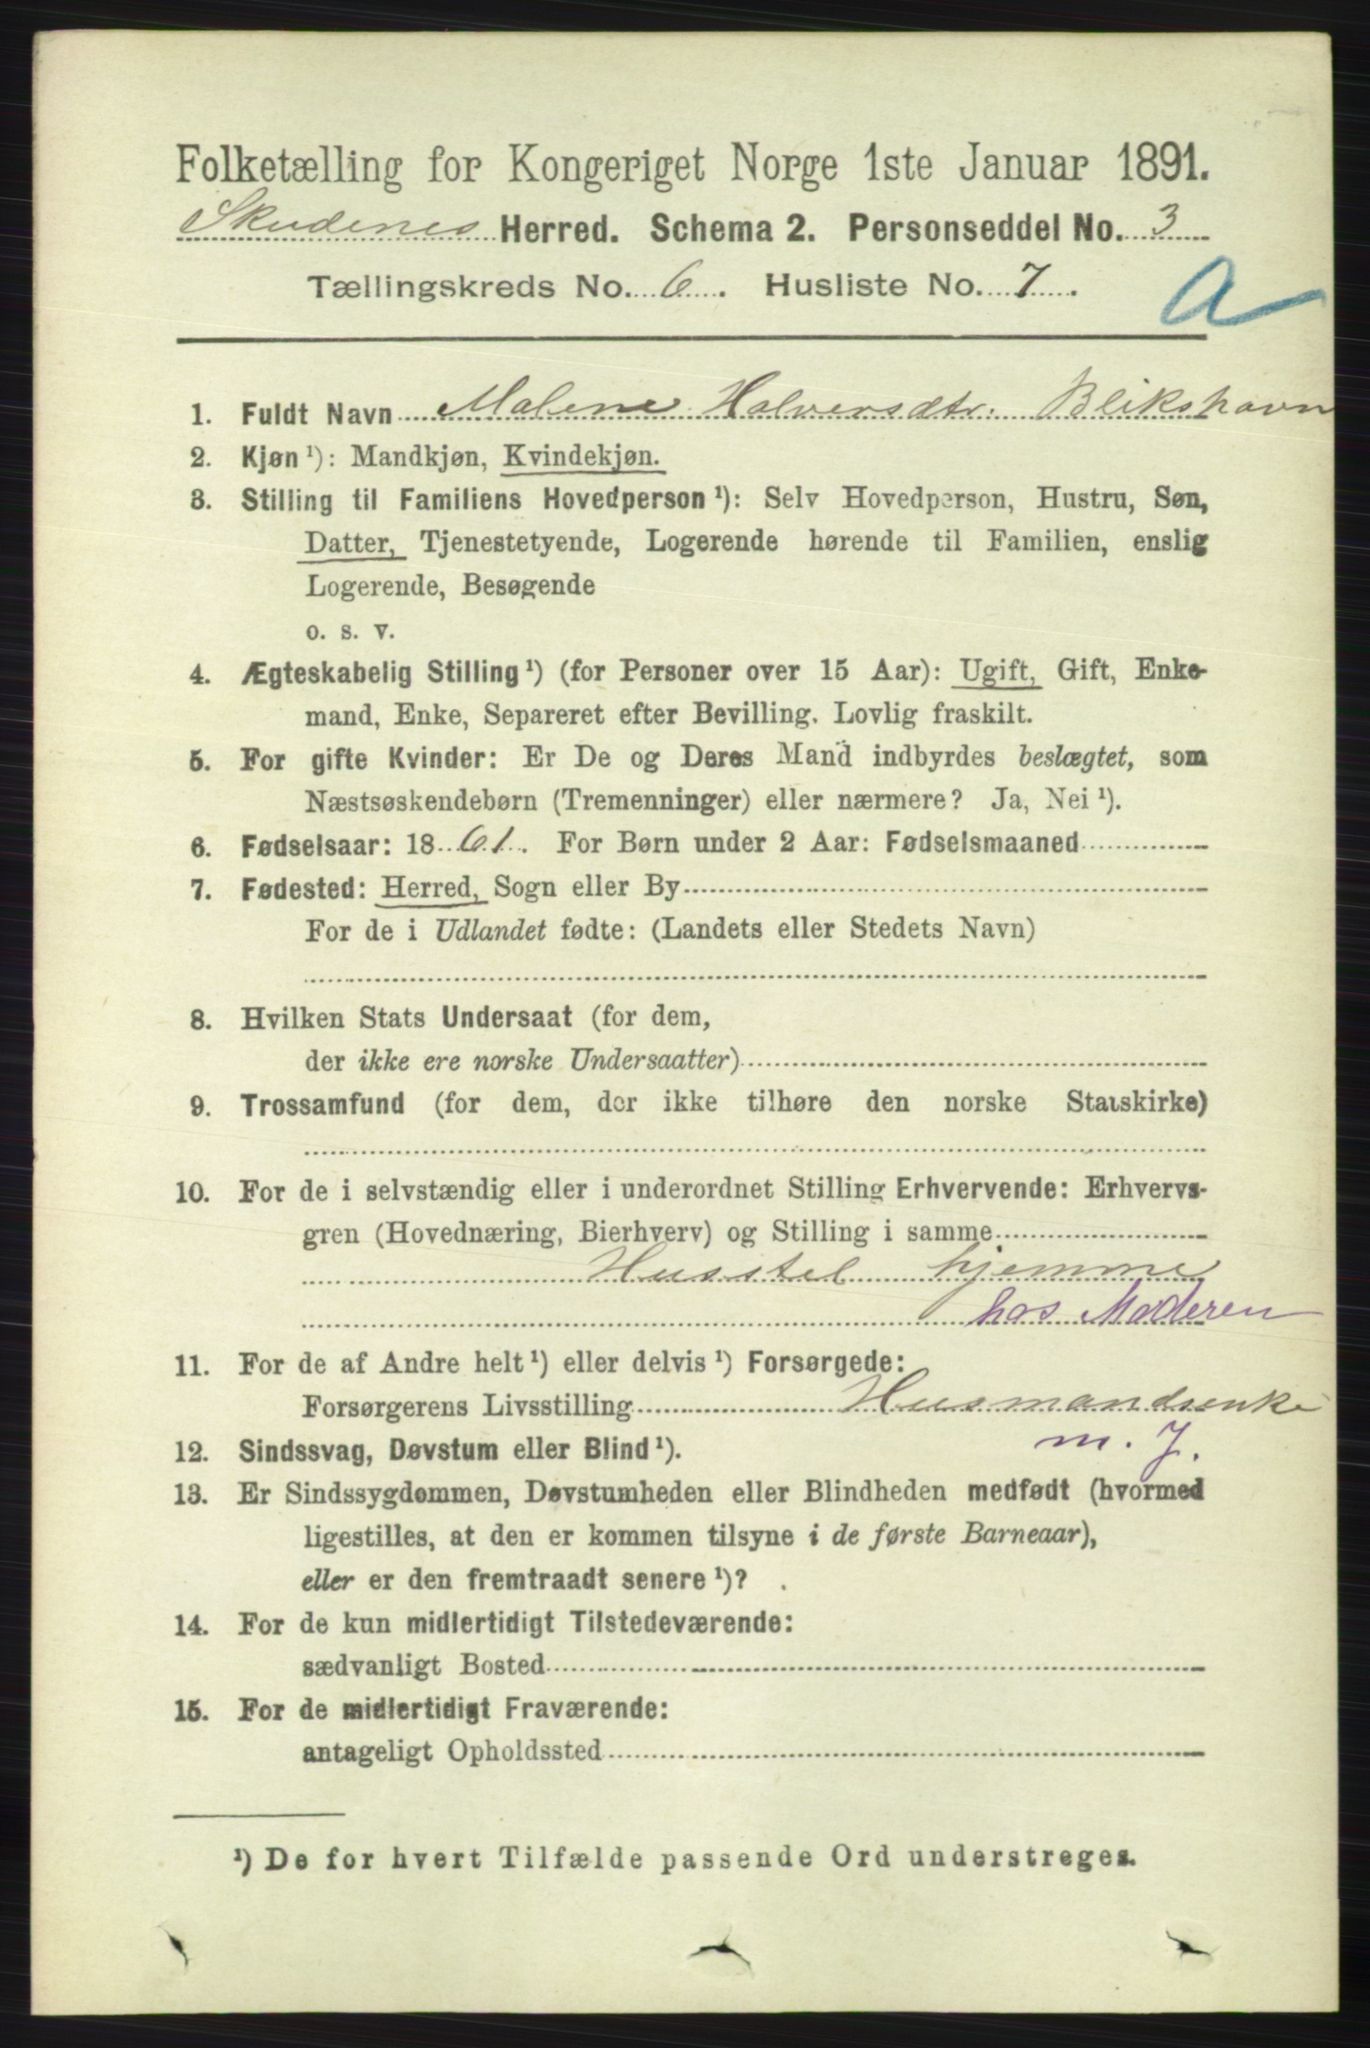 Folketælling for Kongeriget Norge 1ste Januar 1891.
Skudenes Herred. Schema 2. Personseddel No. 3
Tællingskreds No. 6. Husliste No. 7.
a
1. Fuldt Navn Malene Halversdtr. Blikshavn
2. Kjøn ¹): Mandkjøn, Kvindekjøn.
3. Stilling til Familiens Hovedperson ¹): Selv Hovedperson, Hustru, Søn,
Datter, Tjenestetyende, Logerende hørende til Familien, enslig
Logerende, Besøgende
o. s. v.
4. Ægteskabelig Stilling ¹) (for Personer over 15 Aar): Ugift, Gift, Enke-
mand, Enke, Separeret efter Bevilling. Lovlig fraskilt.
5. For gifte Kvinder: Er De og Deres Mand indbyrdes beslægtet, som
Næstsøskendebørn (Tremenninger) eller nærmere? Ja, Nei ¹).
6. Fødselsaar: 1861. For Børn under 2 Aar: Fødselsmaaned
7. Fødested: Herred, Sogn eller By
For de i Udlandet fødte: (Landets eller Stedets Navn)
8. Hvilken Stats Undersaat (for dem,
der ikke ere norske Undersaatter)
9. Trossamfund (for dem, der ikke tilhøre den norske Statskirke)
10. For de i selvstændig eller i underordnet Stilling Erhvervende: Erhvervs-
gren (Hovednæring, Bierhverv) og Stilling i samme
Husstel hjemme
hos Moderen
11. For de af Andre helt ¹) eller delvis ¹) Forsørgede:
Forsørgerens Livsstilling Husmandsenke
m. J.
12. Sindssvag, Døvstum eller Blind ¹).
13. Er Sindssygdommen, Døvstumheden eller Blindheden medfødt (hvormed
ligestilles, at den er kommen tilsyne i de første Barneaar),
eller er den fremtraadt senere ¹)?
14. For de kun midlertidigt Tilstedeværende:
sædvanligt Bosted
15. For de midlertidigt Fraværende:
antageligt Opholdssted
¹) De for hvert Tilfælde passende Ord understreges.